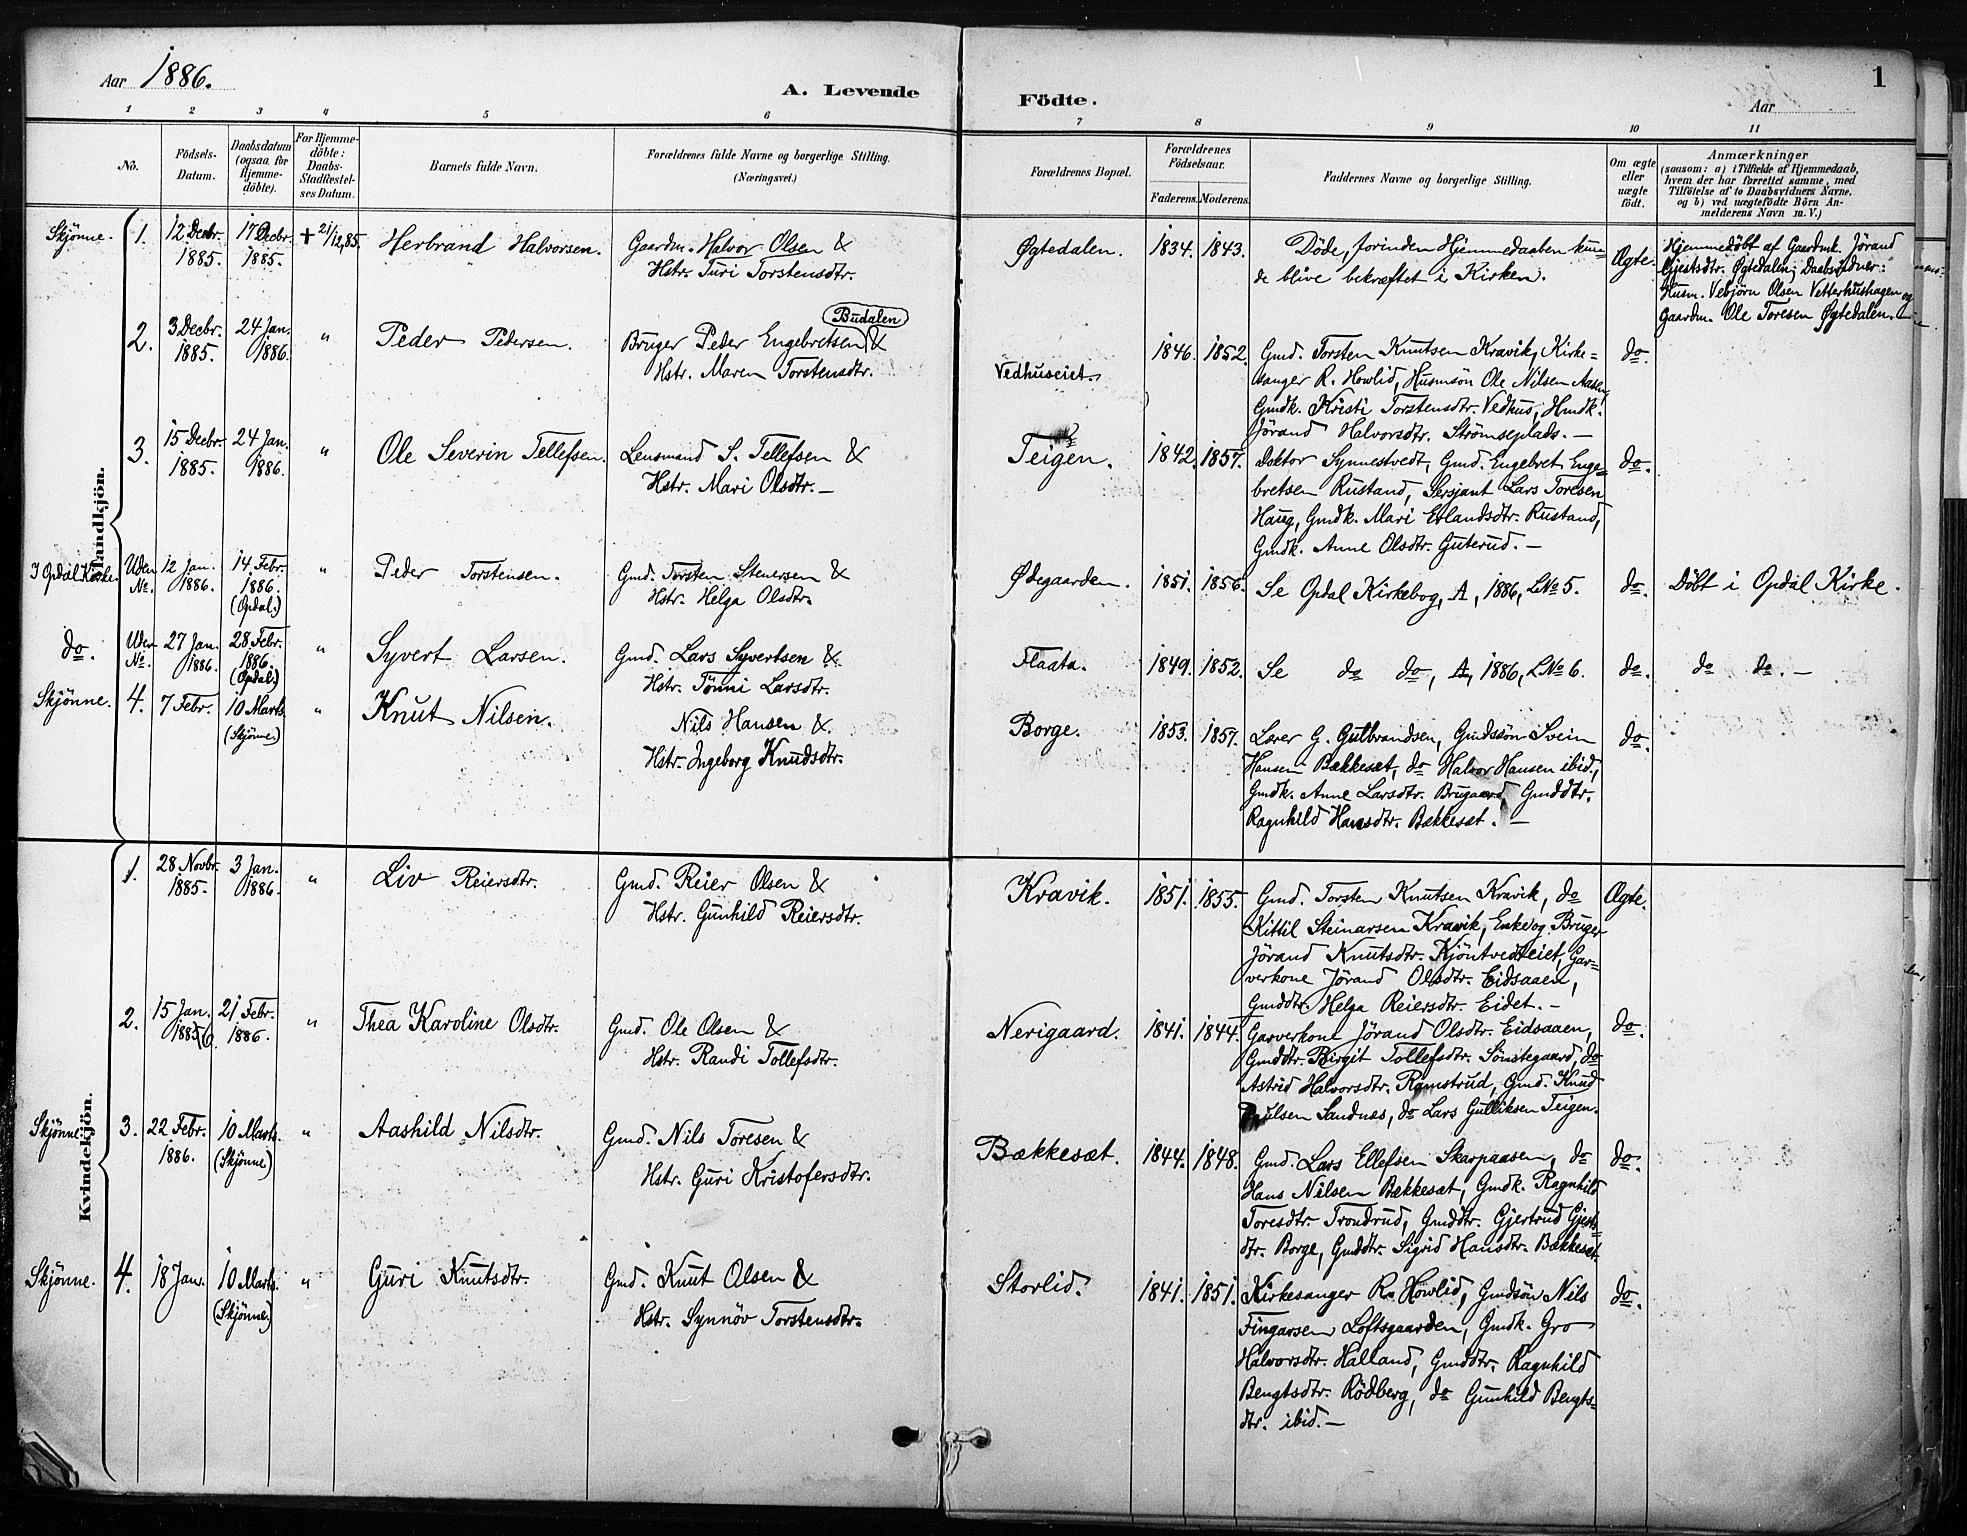 Aar 1886.
A. Levende Födte.
Aar
1
1 2 3 4 5 6 7 8 9 10 11
No.
Födsels-Datum.
Daabsdatum (ogsaa for Hjemme-döbte).
For Hjemme-döbte: Daabs-Stadfæstel-ses Datum.
Barnets fulde Navn.
Forældrenes fulde Navne og borgerlige Stilling. (Næringsvei.)
Forældrenes Bopæl.
Forældrenes Födselsaar.
Faderens. Moderens.
Faddernes Navne og borgerlige Stilling.
Om ægte eller uægte födt.
Anmærkninger
(saasom: a) i Tilfælde af Hjemmedaab, hvem der har forrettet samme, med Tilföielse af to Daabsvidners Navne, og b) ved uægtefödte Börn An-melderens Navn m. V.)
Mandkjön.
Skjönne. 1. 12 Decbr. 1885. 17 Decbr. 1885. + 21/12,85. Herbrand Halvorsen.
Gaardm. Halvor Olsen &
Hstr. Turi Torstensdtr.
Øgtedalen. 1834. 1843.
Döde, forinden Hjemmedaaben kun-
de blive bekræftet i Kirken.
Ægte.
Hjemmedöbt af Gaardmk. Jörand
Gjestsdtr. Øgtedalen; Daabsvidner:
Husm. Vebjörn Olsen Vetterhushagen og
Gaardm. Ole Toresen Øgtedalen.
2. 3 Decbr. 1885. 24 Jan. 1886. " Peder Pedersen.
Budalen
Bruger Peder Engebretsen &
Hstr. Maren Torstensdtr.
Vedhuseiet. 1846. 1852
Gmd. Torsten Knutsen Kravik, Kirke-
sanger R. Howlid, Husmsön Ole Nilsen Aasen,
Gmdk. Kristi Torstensdtr. Vedhus, Hmdk.
Jörand Halvorsdtr. Strömseplads. —
do.
3. 15 Decbr. 1885. 24 Jan. 1886. " Ole Severin Tellefsen.
Lensmand S. Tellefsen &
Hstr. Mari Olsdtr. —
Teigen. 1842. 1857.
Doktor Synnestvedt, Gmd. Engebret Enge-
bretsen Rustand, Sersjant Lars Toresen
Haug, Gmdk. Mari Erlandsdtr. Rustand,
Gmdk. Anne Olsdtr. Guterud. —
do.
I Opdal Kirke. Uden No. 12 Jan. 1886. 14 Febr. 1886. (Opdal.) " Peder Torstensen.
Gmd. Torsten Stenersen &
Hstr. Helga Olsdtr.
Ødegaarden. 1851. 1856.
Se Opdal Kirkebog, A, 1886, LNo 5.
do. Döbt i Opdal Kirke.
do. Uden No. 27 Jan. 1886. 28 Febr. 1886. (Opdal.) " Syvert Larsen.
Gmd. Lars Syvertsen &
Hstr. Tönni Larsdtr.
Flaata. 1849. 1852.
Se do do, A, 1886, LNo 6.
do. do do. —
Skjönne. 4. 7 Febr. 10 Marts. (Skjönne.) " Knut Nilsen.
Nils Hansen &
Hstr. Ingeborg Knudsdtr.
Borge. 1853. 1857.
Lærer G. Gulbrandsen, Gmdssön Svein
Hansen Bækkesæt, do Halvor Hansen ibid.,
Gmdk. Anne Larsdtr. Brugaard, Gmddtr.
Ragnhild Hansdtr. Bækkesæt. —
do.
Kvindekjön.
1. 28 Novbr. 1885. 3 Jan. 1886. " Liv Reiersdtr.
Gmd. Reier Olsen &
Hstr. Gunhild Reiersdtr.
Kravik. 1851. 1855.
Gmd. Torsten Knutsen Kravik, do
Kittil Steinarsen Kravik, Enke og Bruger
Jörand Knutsdtr. Kjöntvedteiet, Gar-
verkone Jörand Olsdtr. Eidsaaen,
Gmddtr. Helga Reiersdtr. Eidet. —
Ægte.
2. 15 Jan. 1885(6. 21 Febr. 1886. " Thea Karoline Olsdtr.
Gmd. Ole Olsen &
Hstr. Randi Tollefsdtr.
Nerigaard. 1841. 1844.
Garverkone Jörand Olsdtr. Eidsaaen,
Gmddtr. Birgit Tollefsdtr. Sönstegaard, do
Astrid Halvorsdtr. Ramstrud, Gmd. Knud
Paulsen Sandnæs, do Lars Gulliksen Teigen.
do.
Skjönne. 3. 22 Febr. 1886. 10 Marts. (Skjönne) " Aashild Nilsdtr.
Gmd. Nils Toresen &
Hstr. Guri Kristofersdtr.
Bækkesæt. 1844. 1848.
Gmd. Lars Ellefsen Skarpaasen, do
Hans Nilsen Bækkesæt, Gmdk. Ragnhild
Toresdtr. Trondrud, Gmddtr. Gjertrud Gjests-
dtr. Borge, Gmddtr. Sigrid Hansdtr. Bækkesæt.
do.
Skjönne. 4. 18 Jan. 10 Marts. (Skjönne.) " Guri Knutsdtr.
Gmd. Knut Olsen &
Hstr. Synnöv Torstensdtr.
Storlid. 1841. 1851.
Kirkesanger R. Howlid, Gmdsön Nils
Fingarsen Loftsgaarden, Gmdk. Gro
Halvorsdtr. Halland, Gmddtr. Ragnhild
Bengtsdtr. Rödberg, do Gunhild Bengts-
dtr. ibid. —
do.